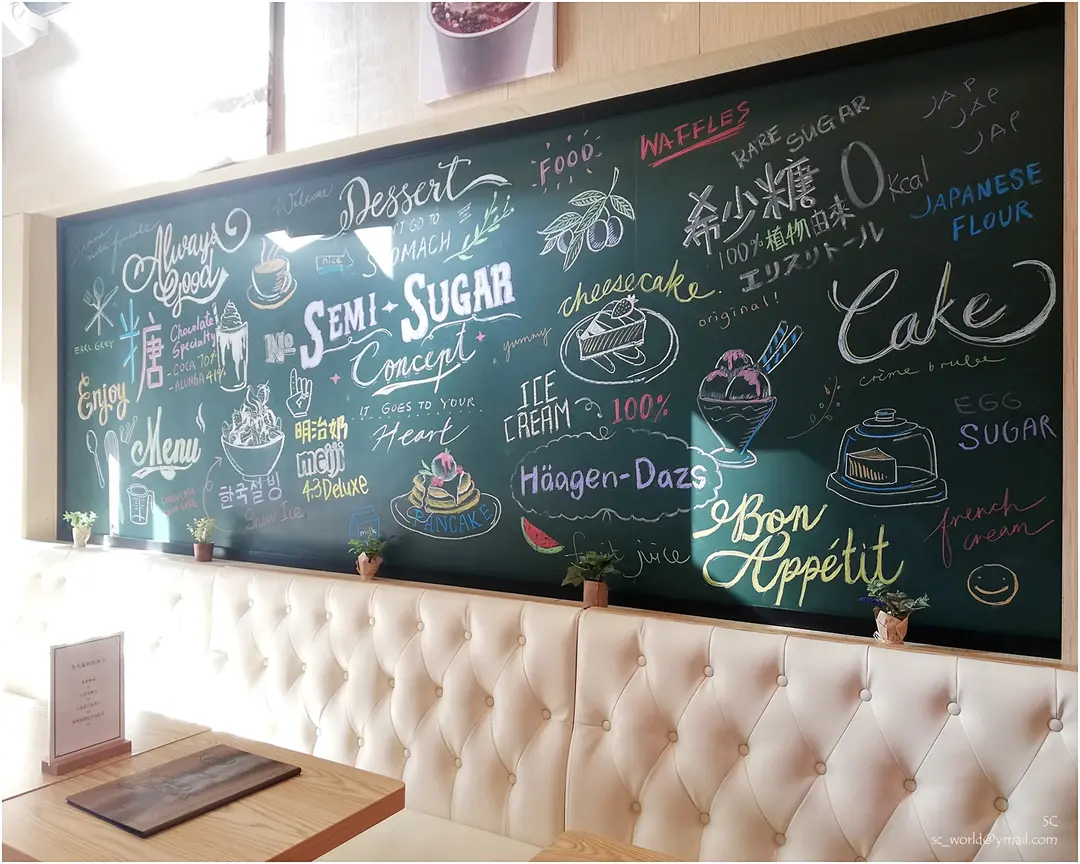 Always
Good
EARL GREY
糖
Enjoy
Chocolate
Specialty
- COCA 70%
- ALUNGA 41%
Menu
CHOCOLATE
한국설빙
Snow Ice
Welcome
Dessert
GO TO
STOMACH
nice
No
SEMI-SUGAR
Concept
IT GOES TO YOUR
Heart
明治奶
meiji
4.3 Deluxe
milk
PANCAKE
FOOD
WAFFLES
cheesecake
yummy
ICE
CREAM
100%
Häagen-Dazs
fruit juice
RARE SUGAR
希少糖
0
Kcal
100% 植物由来
エリスリトール
original!
JAP
JAP
JAP
JAPANESE
FLOUR
Cake
crème brulee
EGG
SUGAR
french
cream
Bon
Appétit
SC
sc_world@ymail.com